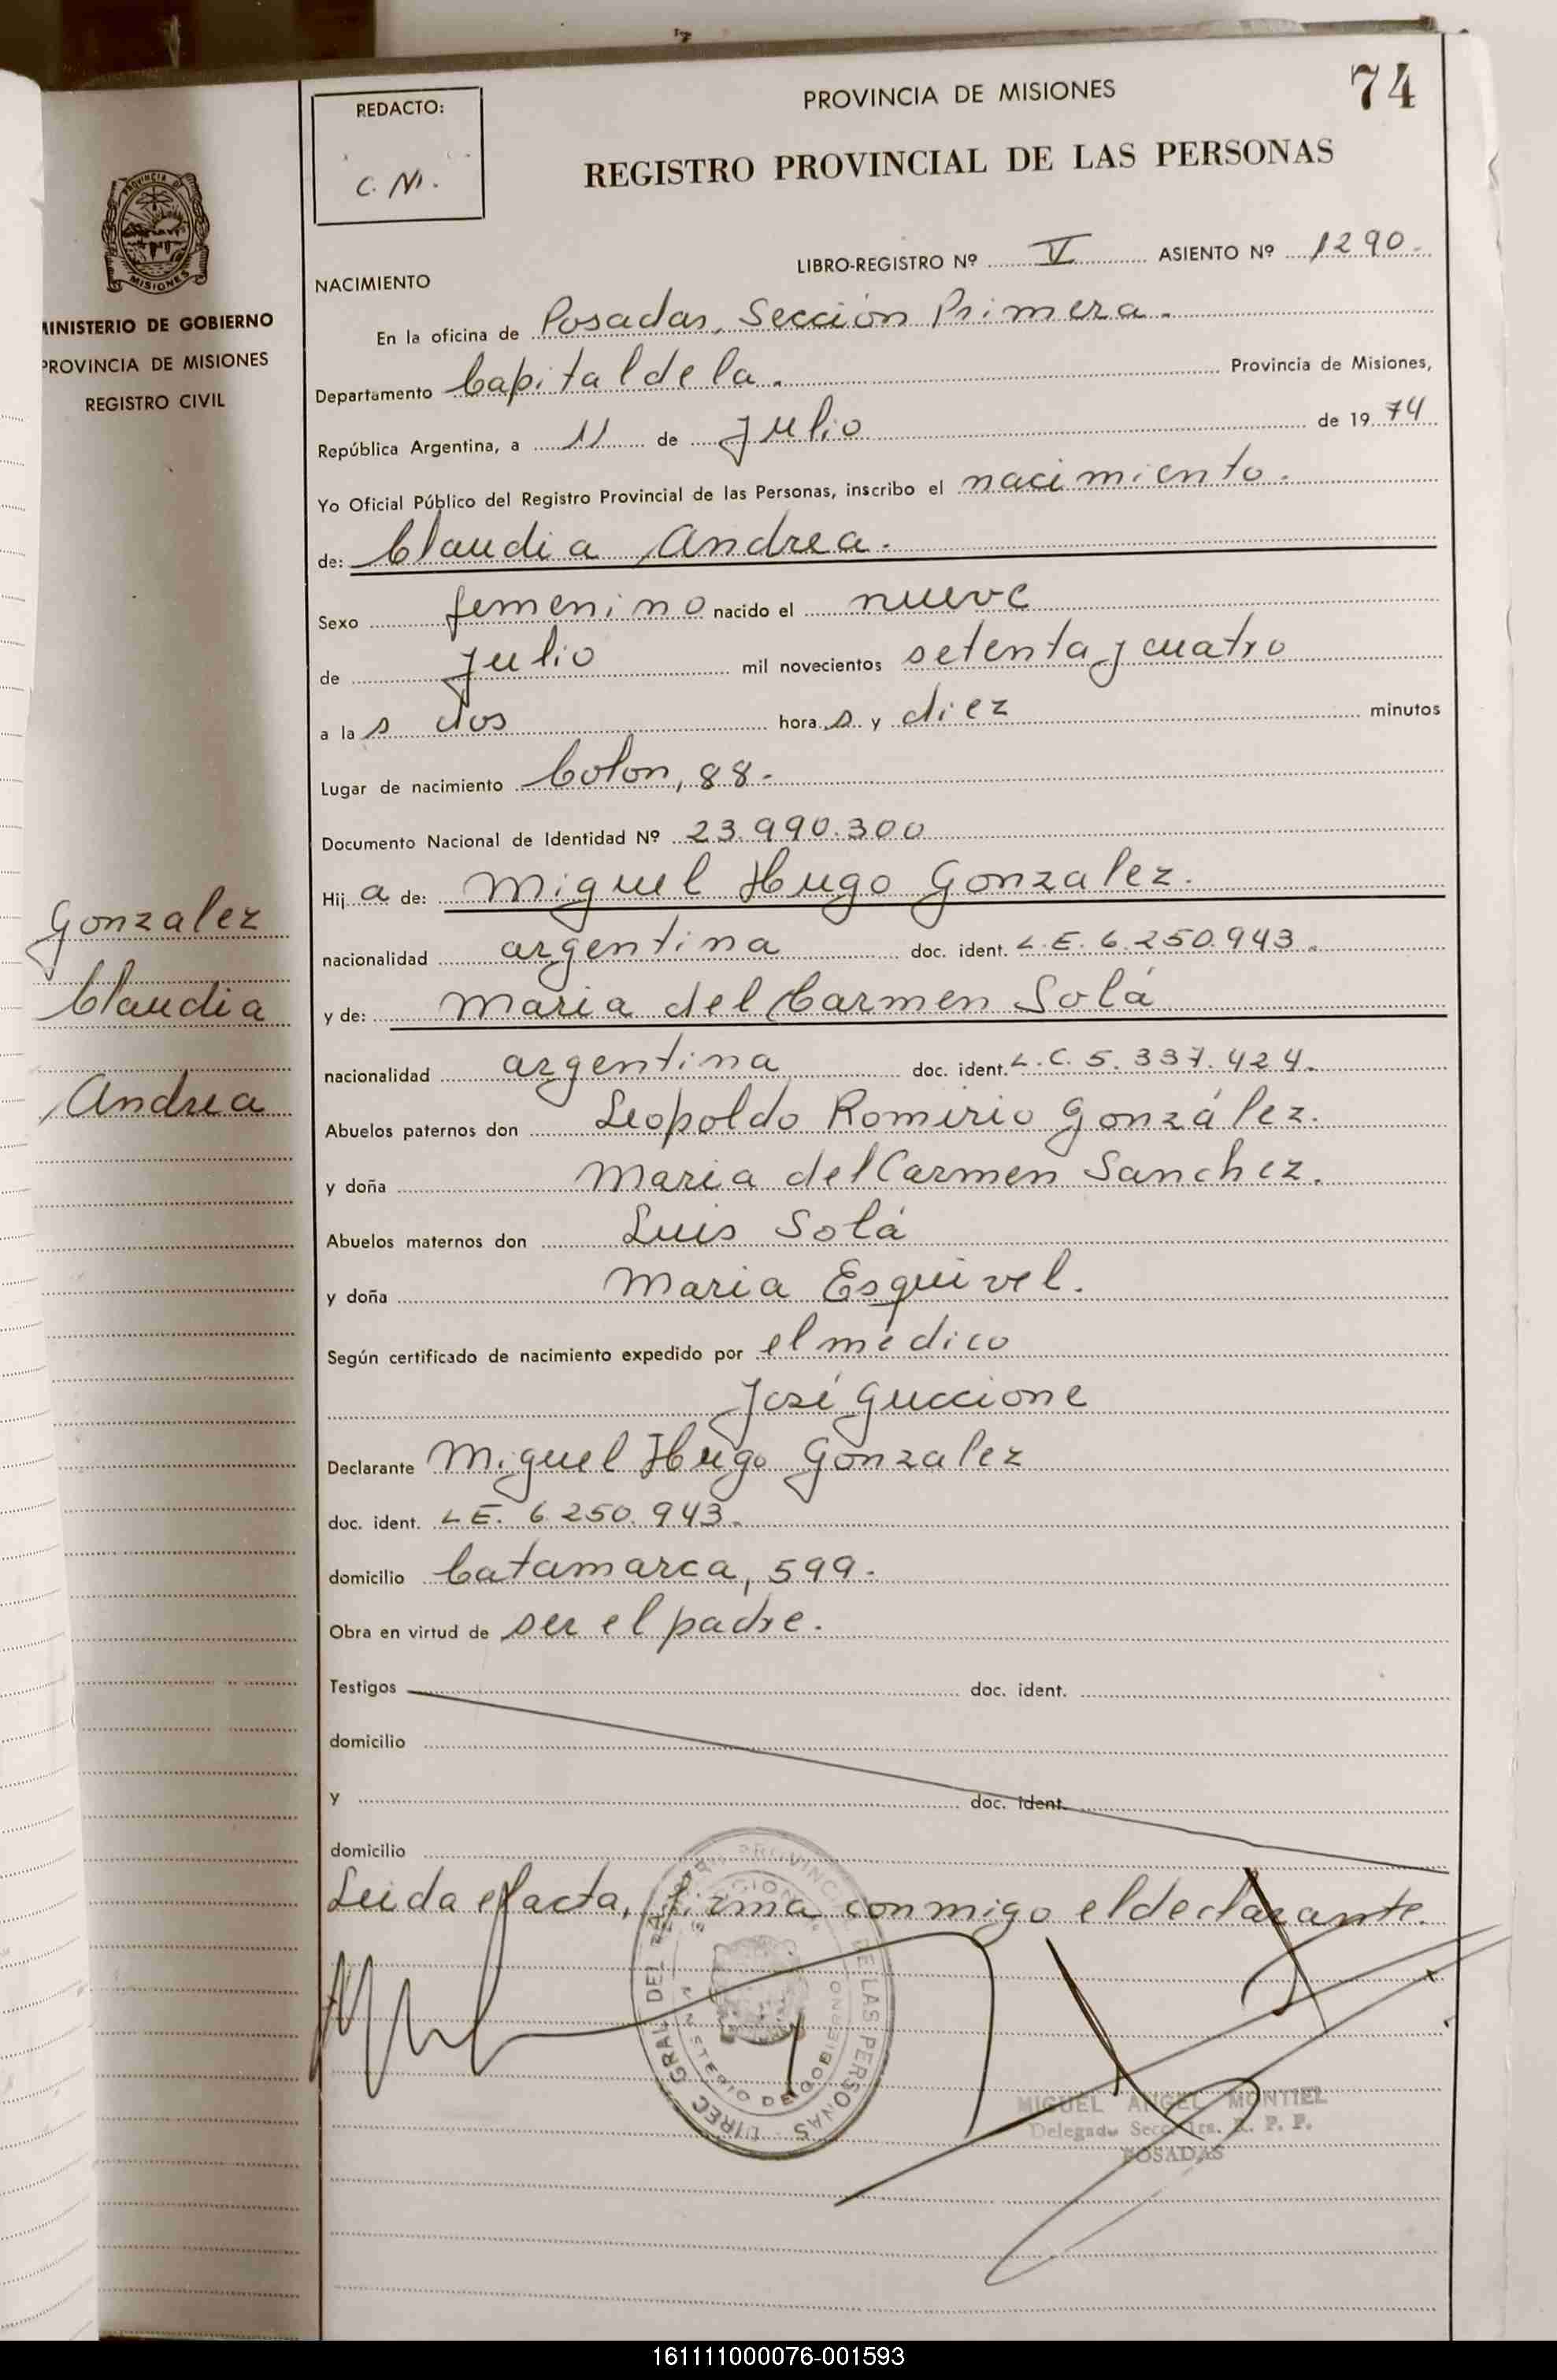 74
REDACTO:
C. M.
PROVINCIA DE MISIONES
REGISTRO PROVINCIAL DE LAS PERSONAS
PROVINCIA DE
MISIONES
MINISTERIO DE GOBIERNO
PROVINCIA DE MISIONES
REGISTRO CIVIL
NACIMIENTO
LIBRO-REGISTRO Nº V ASIENTO Nº 1290.
En la oficina de Posadas, Sección Primera.
Departamento Capital de la. Provincia de Misiones,
República Argentina, a 11 de Julio de 1974
Yo Oficial Público del Registro Provincial de las Personas, inscribo el nacimiento.
de: Claudia Andrea.
Sexo femenino nacido el nueve
de Julio mil novecientos setenta y cuatro
a las dos horas y diez minutos
Lugar de nacimiento Colon, 88.
Documento Nacional de Identidad Nº 23.990.300
Hija de: Miguel Hugo Gonzalez.
nacionalidad argentina doc. ident. L.E. 6.250.943.
y de: Maria del Carmen Solá
nacionalidad argentina doc. ident. L.C. 5.337.424.
Abuelos paternos don Leopoldo Romirio González.
y doña Maria del Carmen Sanchez.
Abuelos maternos don Luis Solá
y doña Maria Esquivel.
Según certificado de nacimiento expedido por el médico
José Guccione
Declarante Miguel Hugo Gonzalez
doc. ident. L.E. 6.250.943.
domicilio Catamarca, 599.
Obra en virtud de ser el padre.
Testigos doc. ident.
domicilio
y doc. ident.
domicilio
Leida el acta, firma conmigo el declarante.
Gonzalez
Claudia
Andrea
DIREC. GRAL. DEL PROVINCIAL DE LAS PERSONAS
MINISTERIO DE GOBIERNO
MIGUEL ANGEL MONTIEL
Delegado Secc. 1ra. R. P. P.
POSADAS
161111000076-001593